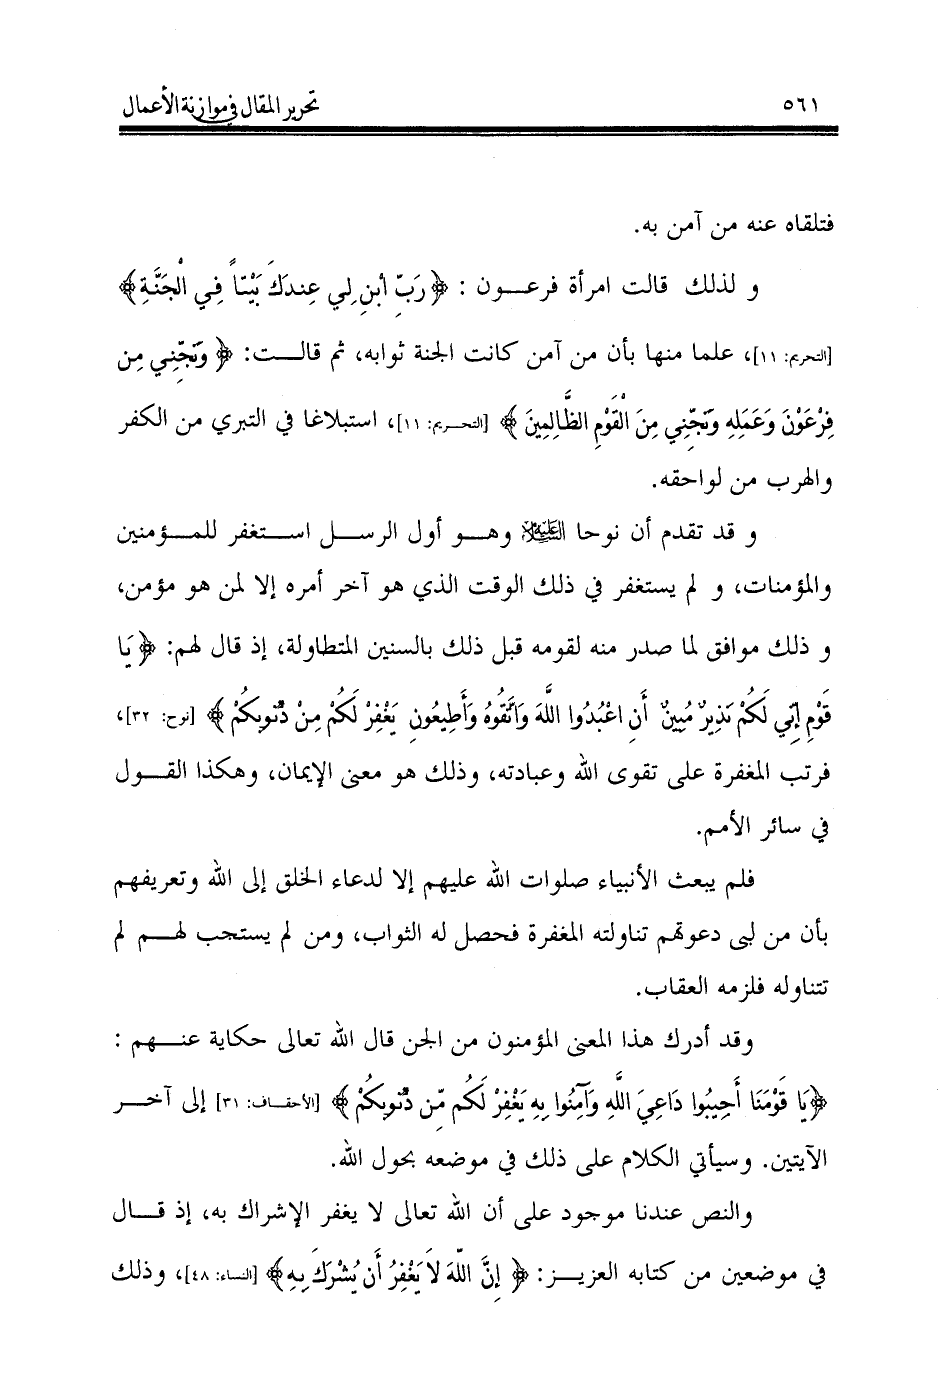 ٥٦١ تحرير المقال في موازنة الأعمال
فتلقاه عنه من آمن به.
و لذلك قالت امرأة فرعـــون : ﴿رَبِّ ابْنِ لِي عِندَكَ بَيْتاً فِي الْجَنَّةِ﴾
[التحريم: ١١]، علما منها بأن من آمن كانت الجنة ثوابه، ثم قالـــت: ﴿ وَنَجِّنِي مِن
فِرْعَوْنَ وَعَمَلِهِ وَنَجِّنِي مِنَ الْقَوْمِ الظَّالِمِينَ ﴾ [التحـــريم: ١١]، استبلاغا في التبري من الكفر
والهرب من لواحقه.
و قد تقدم أن نوحا عليه السلام وهـــو أول الرســـل اســـتغفر للمـــؤمنين
والمؤمنات، و لم يستغفر في ذلك الوقت الذي هو آخر أمره إلا لمن هو مؤمن،
و ذلك موافق لما صدر منه لقومه قبل ذلك بالسنين المتطاولة، إذ قال لهم: ﴿يَا
قَوْمِ إِنِّي لَكُمْ نَذِيرٌ مُبِينٌ أَنِ اعْبُدُوا اللَّهَ وَاتَّقُوهُ وَأَطِيعُونِ يَغْفِرْ لَكُمْ مِنْ ذُنُوبِكُمْ ﴾ [نوح: ٣٢]،
فرتب المغفرة على تقوى الله وعبادته، وذلك هو معنى الإيمان، وهكذا القـــول
في سائر الأمم.
فلم يبعث الأنبياء صلوات الله عليهم إلا لدعاء الخلق إلى الله وتعريفهم
بأن من لبى دعوتهم تناولته المغفرة فحصل له الثواب، ومن لم يستجب لهـــم لم
تتناوله فلزمه العقاب.
وقد أدرك هذا المعنى المؤمنون من الجن قال الله تعالى حكاية عنـــهم :
﴿يَا قَوْمَنَا أَجِيبُوا دَاعِيَ اللَّهِ وَآمِنُوا بِهِ يَغْفِرْ لَكُم مِّن ذُنُوبِكُمْ ﴾ [الأحقـــاف: ٣١] إلى آخـــر
الآيتين. وسيأتي الكلام على ذلك في موضعه بحول الله.
والنص عندنا موجود على أن الله تعالى لا يغفر الإشراك به، إذ قـــال
في موضعين من كتابه العزيـــز: ﴿ إِنَّ اللَّهَ لاَ يَغْفِرُ أَن يُشْرَكَ بِهِ﴾ [النساء: ٤٨]، وذلك